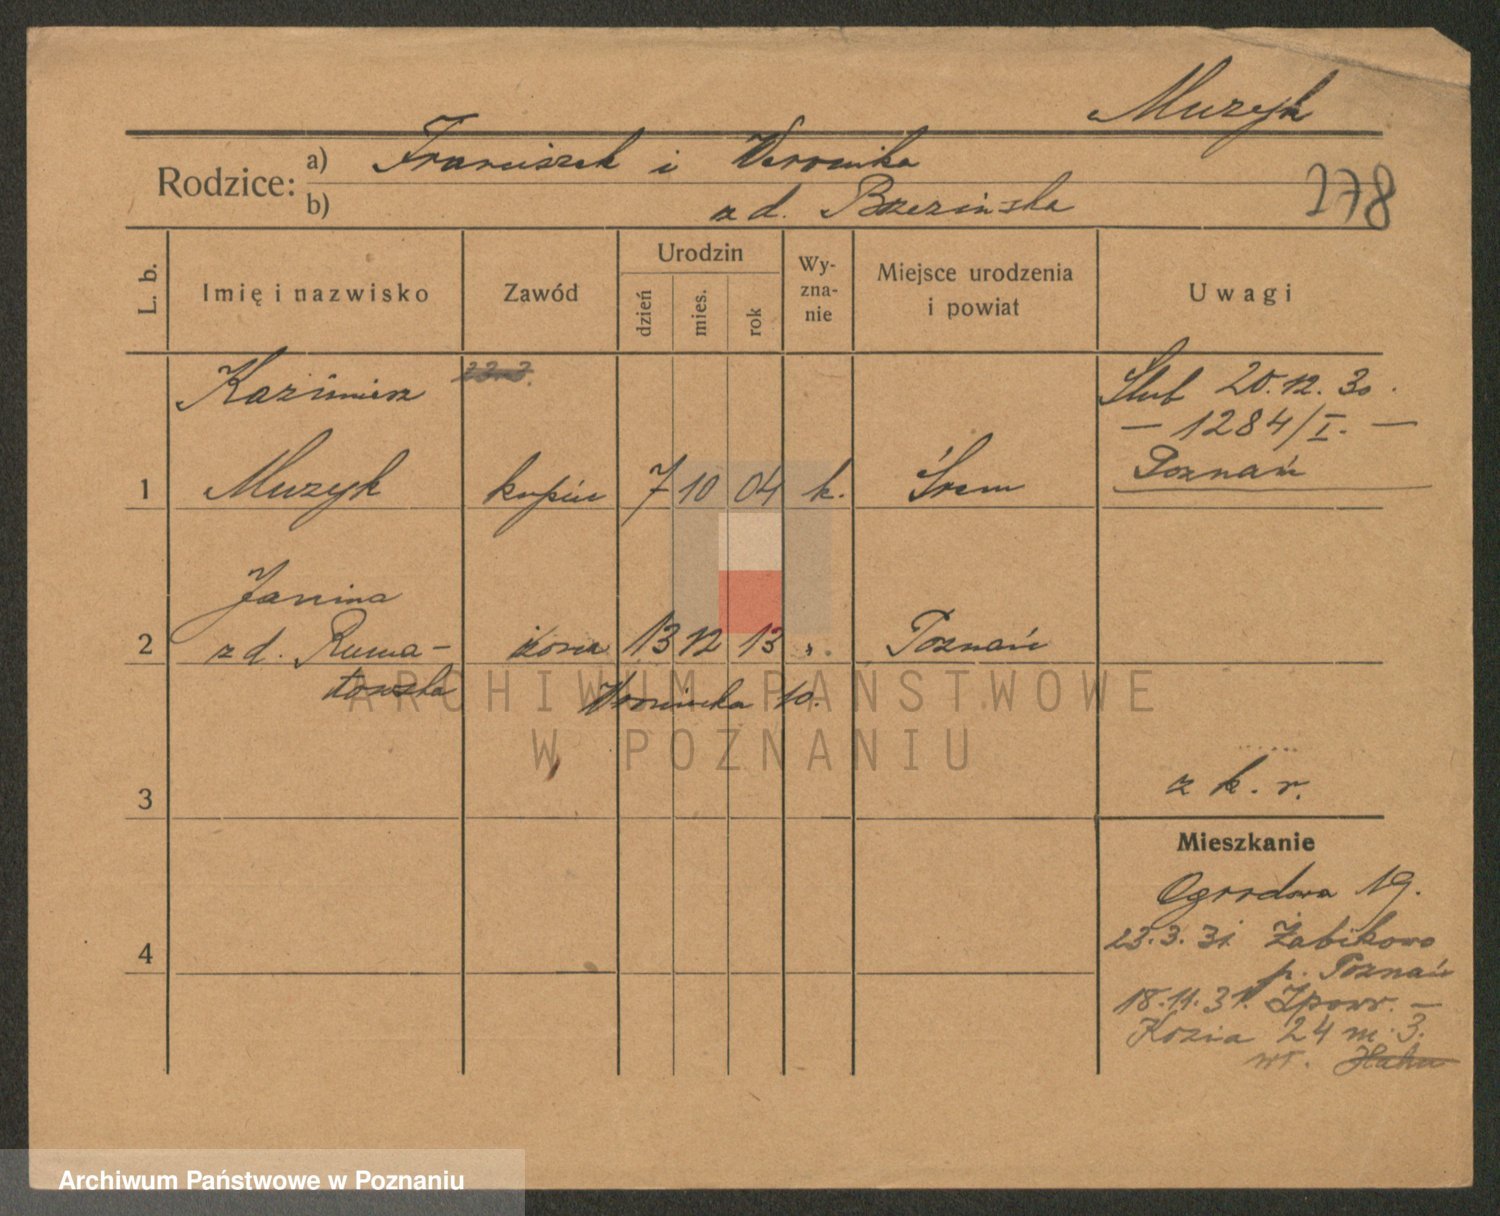 Muzyk
Rodzice: a) Franciszek i Weronika
b) z d. Brzezińska
178
L. b.
Imię i nazwisko
Zawód
Urodzin
dzień
mies.
rok
Wy-
zna-
nie
Miejsce urodzenia
i powiat
Uwagi
Kazimierz
Ślub 20.12.30.
— 1284/I. —
Poznań
1 Muzyk kupiec 7 10 04 k. Śrem
Janina
2 z d. Ruma- żona 13 12 13 " Poznań
towska
Wroniecka 10.
ARCHIWUM PAŃSTWOWE
W POZNANIU
3
z k. r.
Mieszkanie
Ogrodowa 19.
23.3.31. Żabikowo
p. Poznań
4
18.11.31. Zpowr. —
Kozia 24 m. 3.
wł. Hahn
Archiwum Państwowe w Poznaniu